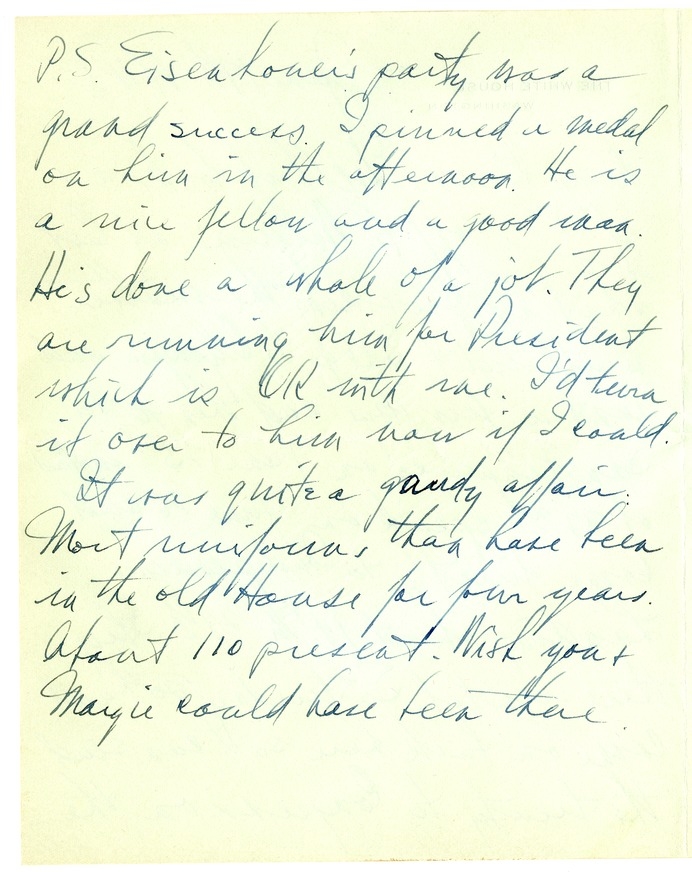 P.S. Eisenhower's party was a
grand success. I pinned a medal
on him in the afternoon. He is
a nice fellow and a good man.
He's done a whale of a job. They
are running him for President
which is OK with me. I'd turn
it over to him now if I could.
It was quite a gaudy affair.
Most uniforms than have been
in the old House for four years.
About 110 present. Wish you &
Margie could have been there.